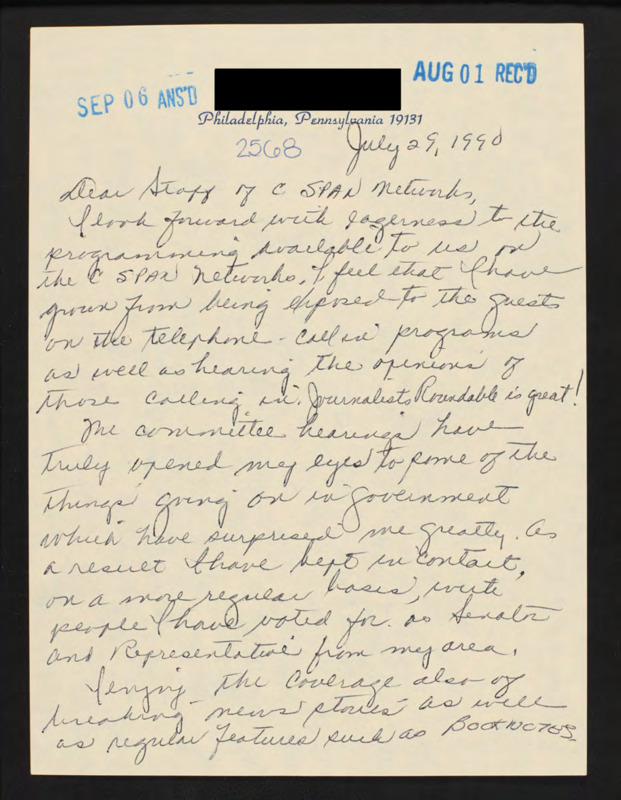 SEP 06 ANS'D
AUG 01 REC'D
Philadelphia, Pennsylvania 19131
2568
July 29, 1990
Dear Staff of C SPAN Networks,
I look forward with eagerness to the
programming available to us on
the C SPAN Networks. I feel that I have
grown from being exposed to the guests
on the telephone-call in programs
as well as hearing the opinions of
those calling in. Journalists Roundable is great!
The committee hearings have
truly opened my eyes to some of the
things going on in government
which have surprised me greatly. As
a result I have kept in contact,
on a more regular basis, with
people I have voted for as Senator
and Representative from my area.
I enjoy the coverage also of
breaking news stories as well
as regular features such as BOOKNOTES.